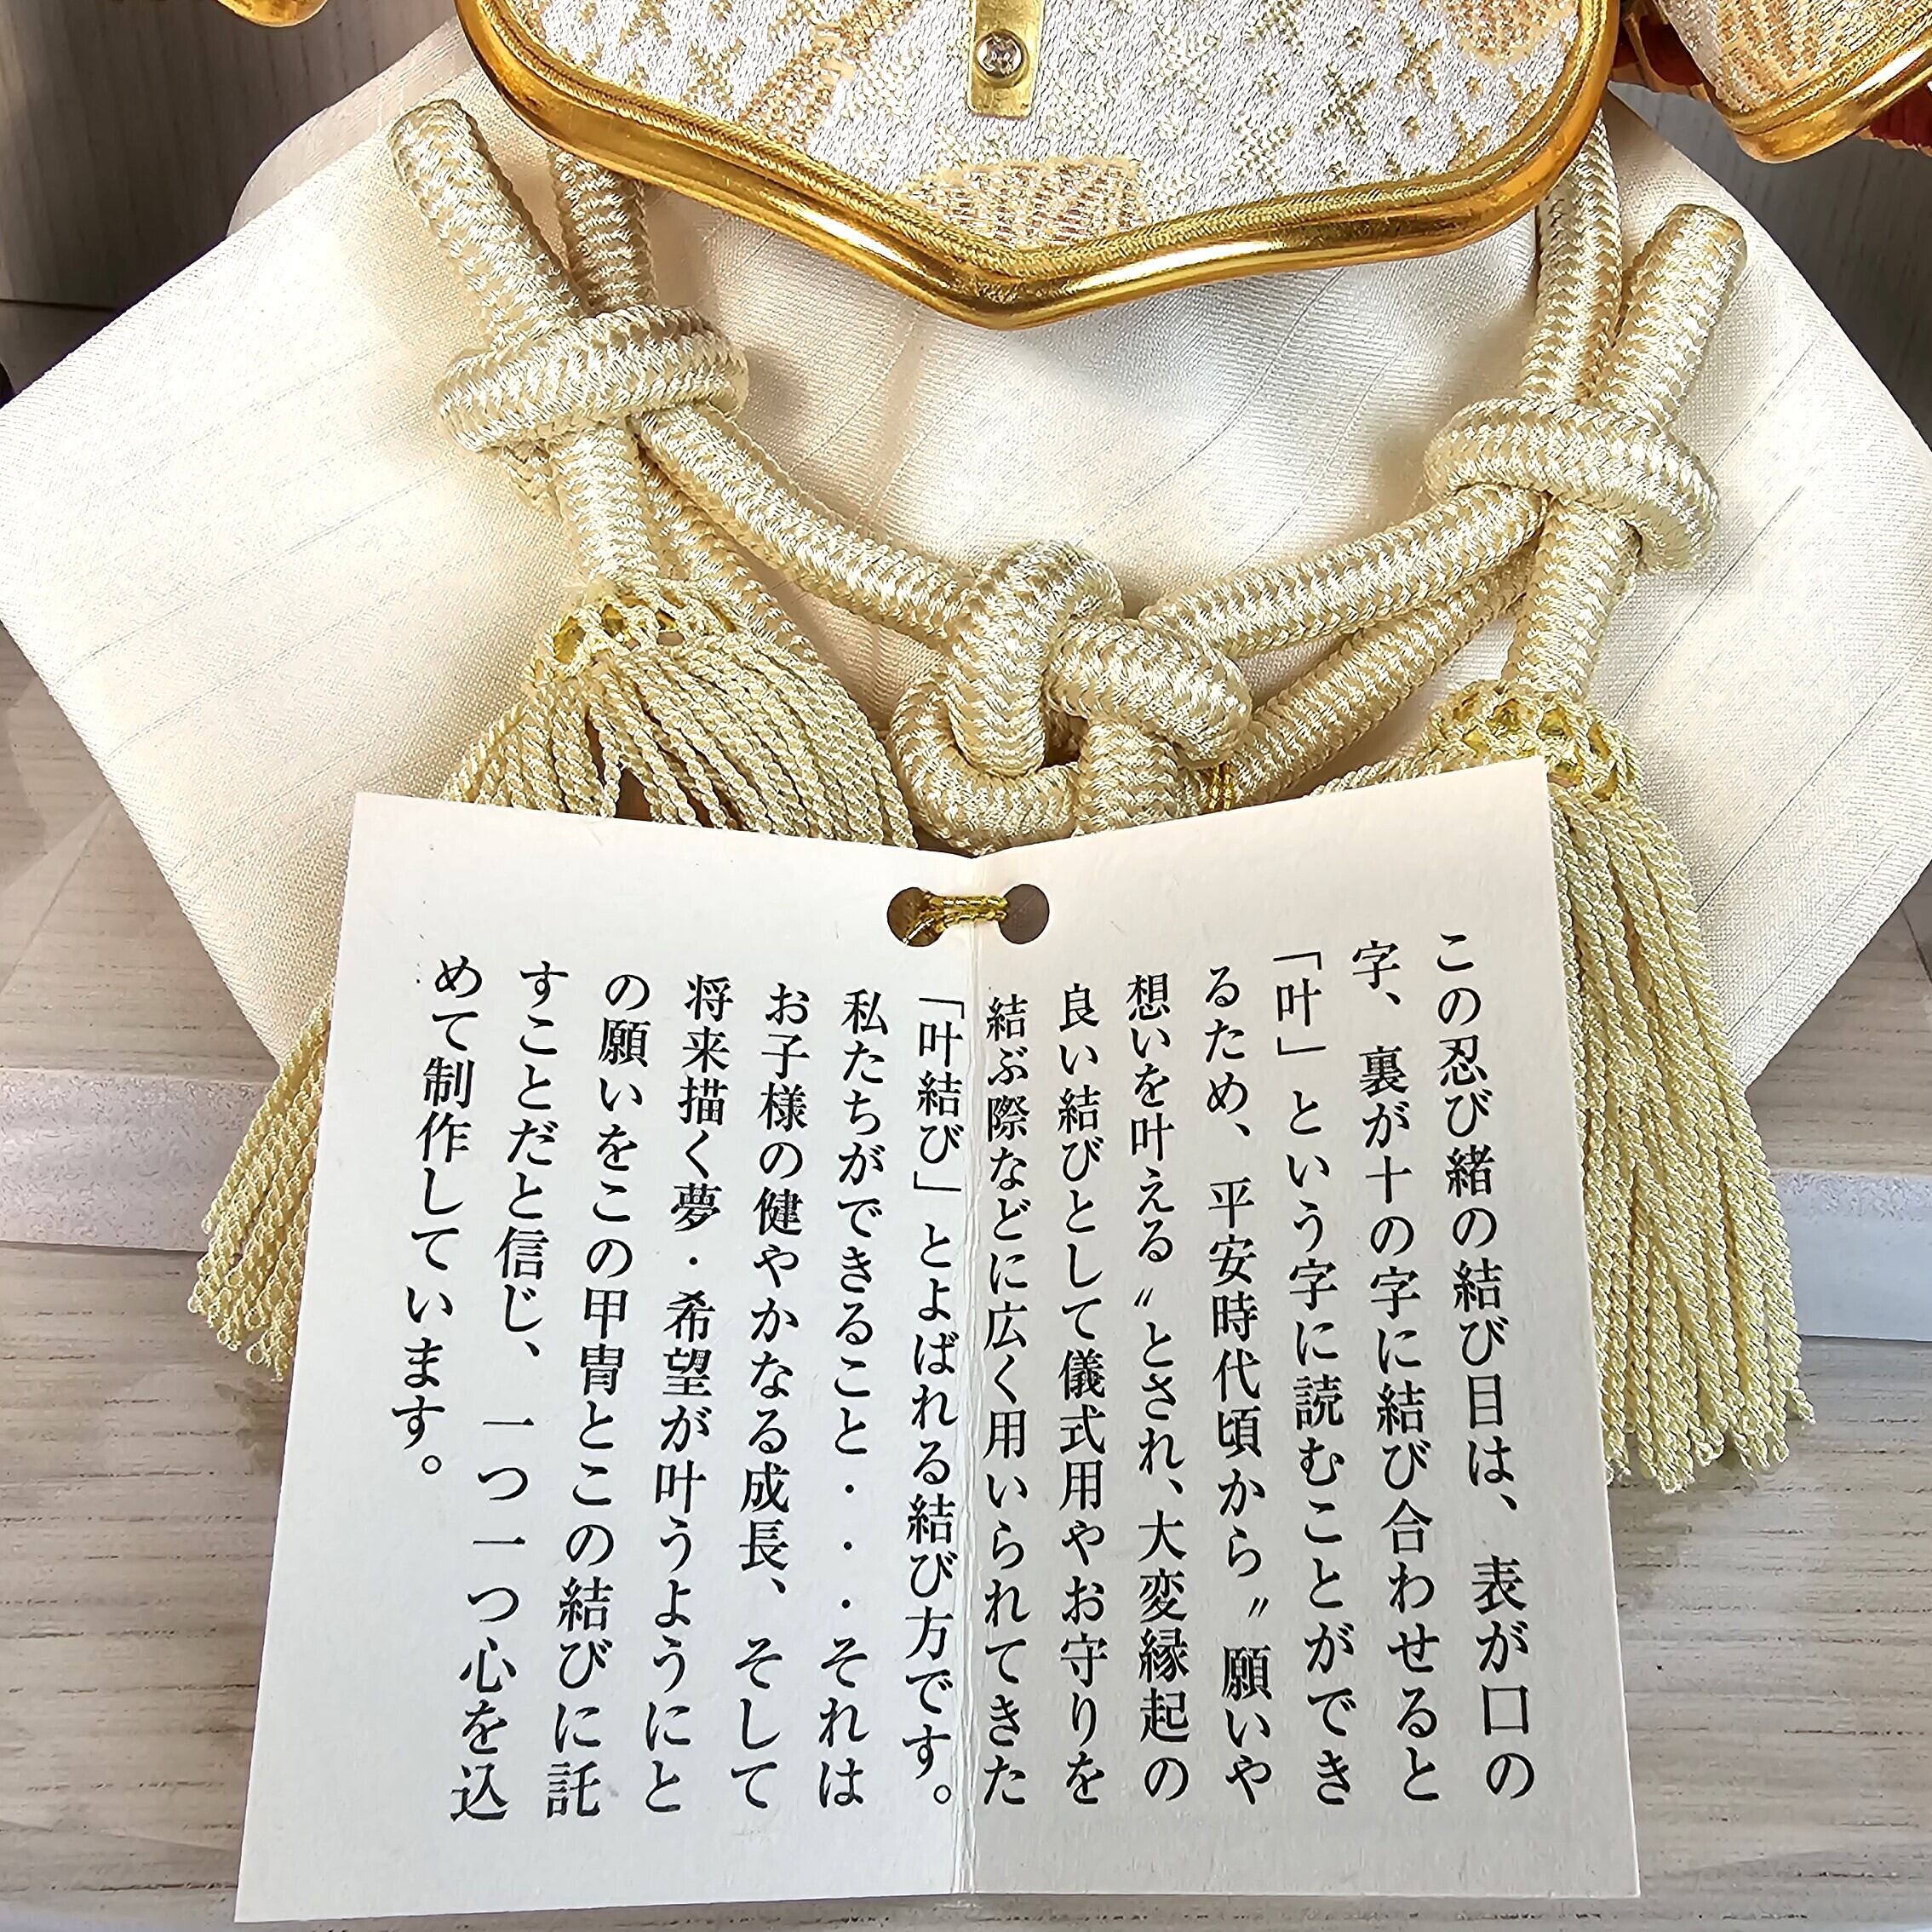 この忍び緒の結び目は、表が口の
字、裏が十の字に結び合わせると
「叶」という字に読むことができ
るため、平安時代頃から〝願いや
想いを叶える〟とされ、大変縁起の
良い結びとして儀式用やお守りを
結ぶ際などに広く用いられてきた
「叶結び」とよばれる結び方です。
私たちができること・・・それは
お子様の健やかなる成長、そして
将来描く夢・希望が叶うようにと
の願いをこの甲冑とこの結びに託
すことだと信じ、一つ一つ心を込
めて制作しています。